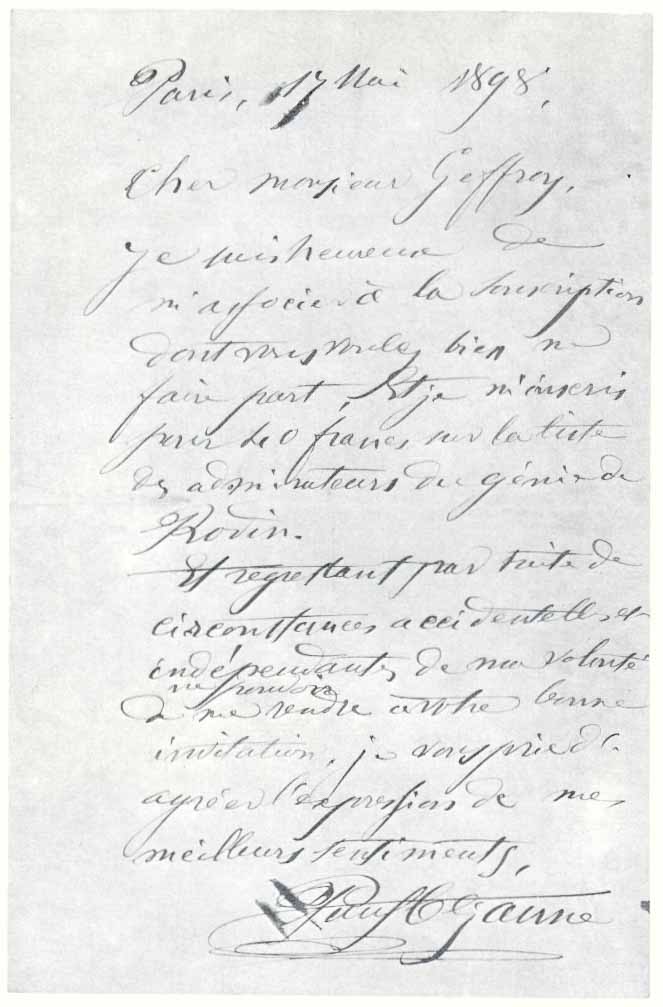 Paris, 17 Mai 1898,
Cher monsieur Geffroy,
Je suis heureux de
m'associer à la souscription
dont vous voulez bien me
faire part, Et je m'inscris
pour 40 francs sur la liste
des admirateurs du génie de
Rodin.
Et regrettant par suite de
circonstances accidentelles et
indépendantes de ma volonté
ne pouvoir
de me rendre à votre bonne
invitation, je vous prie d'
agréer l'expression de mes
meilleurs sentiments,
Paul Cezanne